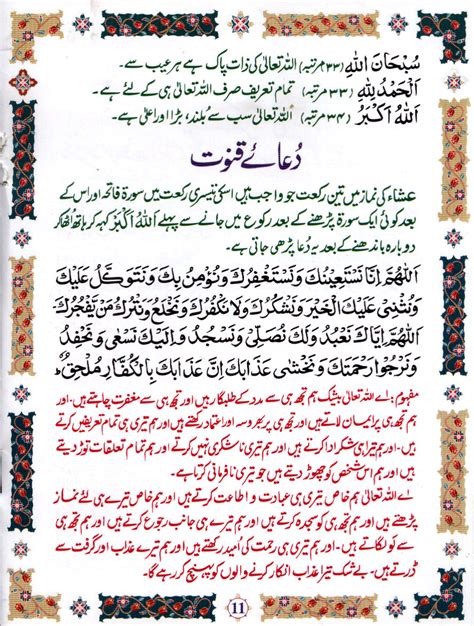 سُبْحَانَ اللهِ (۳۳ مرتبہ) اللہ تعالیٰ کی ذات پاک ہے ہر عیب سے۔
اَلْحَمْدُ لِلّٰهِ (۳۳ مرتبہ) تمام تعریف صرف اللہ تعالیٰ ہی کے لئے ہے۔
اَللهُ اَكْبَرُ (۳۴ مرتبہ) اللہ تعالیٰ سب سے بُلند، بڑا اور اعلیٰ ہے۔
دُعائے قنوت
عشاء کی نماز میں تین رکعت جو واجب ہیں اسکی تیسری رکعت میں سورۃ فاتحہ اور اس کے
بعد کوئی ایک سورۃ پڑھنے کے بعد رکوع میں جانے سے پہلے اَللهُ اَكْبَرُ کہہ کر ہاتھ اٹھا کر
دوبارہ باندھنے کے بعد یہ دعا پڑھی جاتی ہے۔
اَللّٰهُمَّ اِنَّا نَسْتَعِيْنُكَ وَنَسْتَغْفِرُكَ وَنُؤْمِنُ بِكَ وَنَتَوَكَّلُ عَلَيْكَ
وَنُثْنِيْ عَلَيْكَ الْخَيْرَ وَنَشْكُرُكَ وَلَا نَكْفُرُكَ وَنَخْلَعُ وَنَتْرُكُ مَنْ يَّفْجُرُكَ
اَللّٰهُمَّ اِيَّاكَ نَعْبُدُ وَلَكَ نُصَلِّيْ وَنَسْجُدُ وَاِلَيْكَ نَسْعٰى وَنَحْفِدُ
وَنَرْجُوْا رَحْمَتَكَ وَنَخْشٰى عَذَابَكَ اِنَّ عَذَابَكَ بِالْكُفَّارِ مُلْحِقٌ
مفہوم: اے اللہ تعالیٰ بیشک ہم تجھ ہی سے مدد کے طلبگار ہیں اور تجھ ہی سے مغفرت چاہتے ہیں۔ اور
ہم تجھ ہی پر ایمان لاتے ہیں اور تجھ ہی پر بھروسہ اور اعتماد رکھتے ہیں اور ہم تیری ہی تمام تعریفیں کرتے
ہیں۔ اور ہم تیرا ہی شکر ادا کرتے ہیں اور ہم تیری ناشکری نہیں کرتے ہیں اور ہم تمام تعلقات توڑ دیتے
ہیں اور ہم اس شخص کو چھوڑ دیتے ہیں۔ جو تیری نافرمانی کرتا ہے۔
اے اللہ تعالیٰ ہم خاص تیری ہی عبادت و اطاعت کرتے ہیں اور ہم خاص تیرے ہی لئے نماز
پڑھتے ہیں اور ہم تجھ ہی کو سجدہ کرتے ہیں اور ہم تیرے ہی جانب رجوع کرتے ہیں اور ہم تجھ ہی
سے لَو لگاتے ہیں۔ اور ہم تیری ہی رحمت کی اُمید رکھتے ہیں اور ہم تیرے عذاب اور گرفت سے
ڈرتے ہیں۔ بے شک تیرا عذاب انکار کرنے والوں کو پہنچ کر رہے گا۔
11